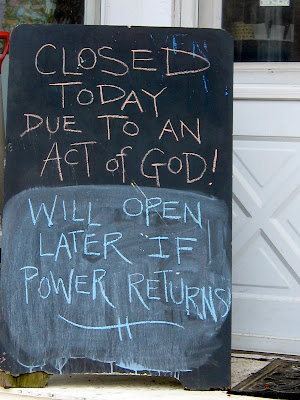 CLOSED
TODAY
DUE TO AN
ACT of GOD!
WILL OPEN
LATER IF
POWER RETURNS